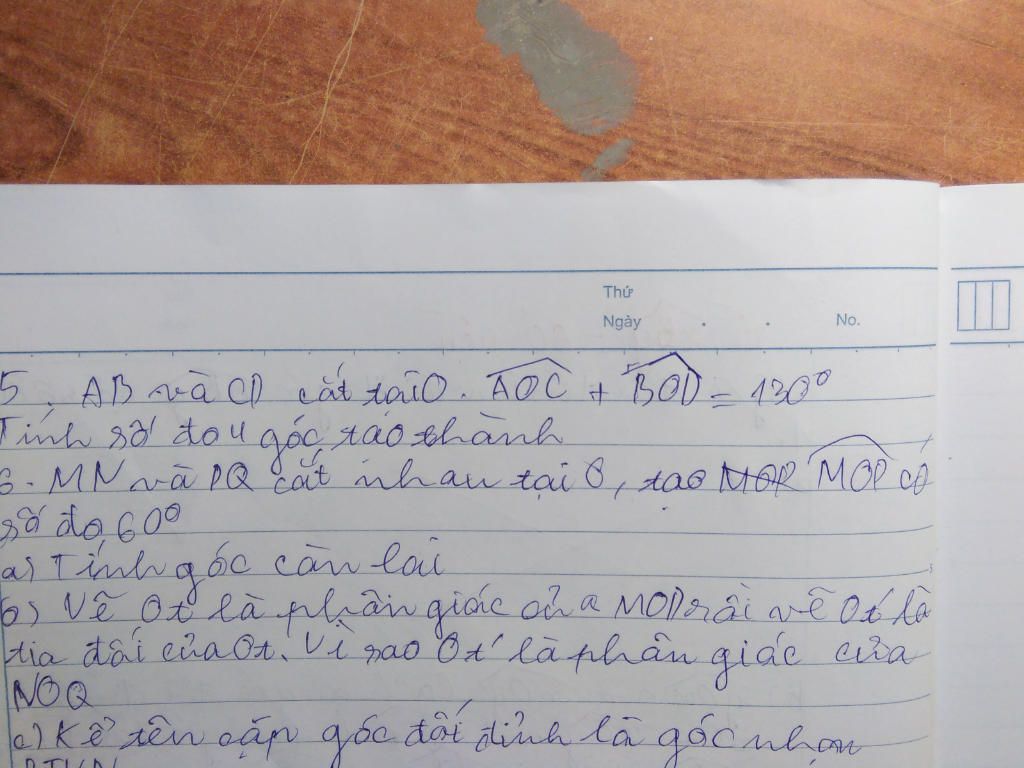 Thứ
Ngày . . No.
5. AB và CD cắt tại O. AOC + BOD = 130°
Tính số đo 4 góc tạo thành
6. MN và PQ cắt nhau tại O, tạo MOR MOP có
số đo 60°
a) Tính góc còn lại
b) Vẽ Ot là phân giác của MOP rồi vẽ Ot' là
tia đối của Ot. Vì sao Ot' là phân giác của
NOQ
c) Kể tên cặp góc đối đỉnh là góc nhọn
BTVN